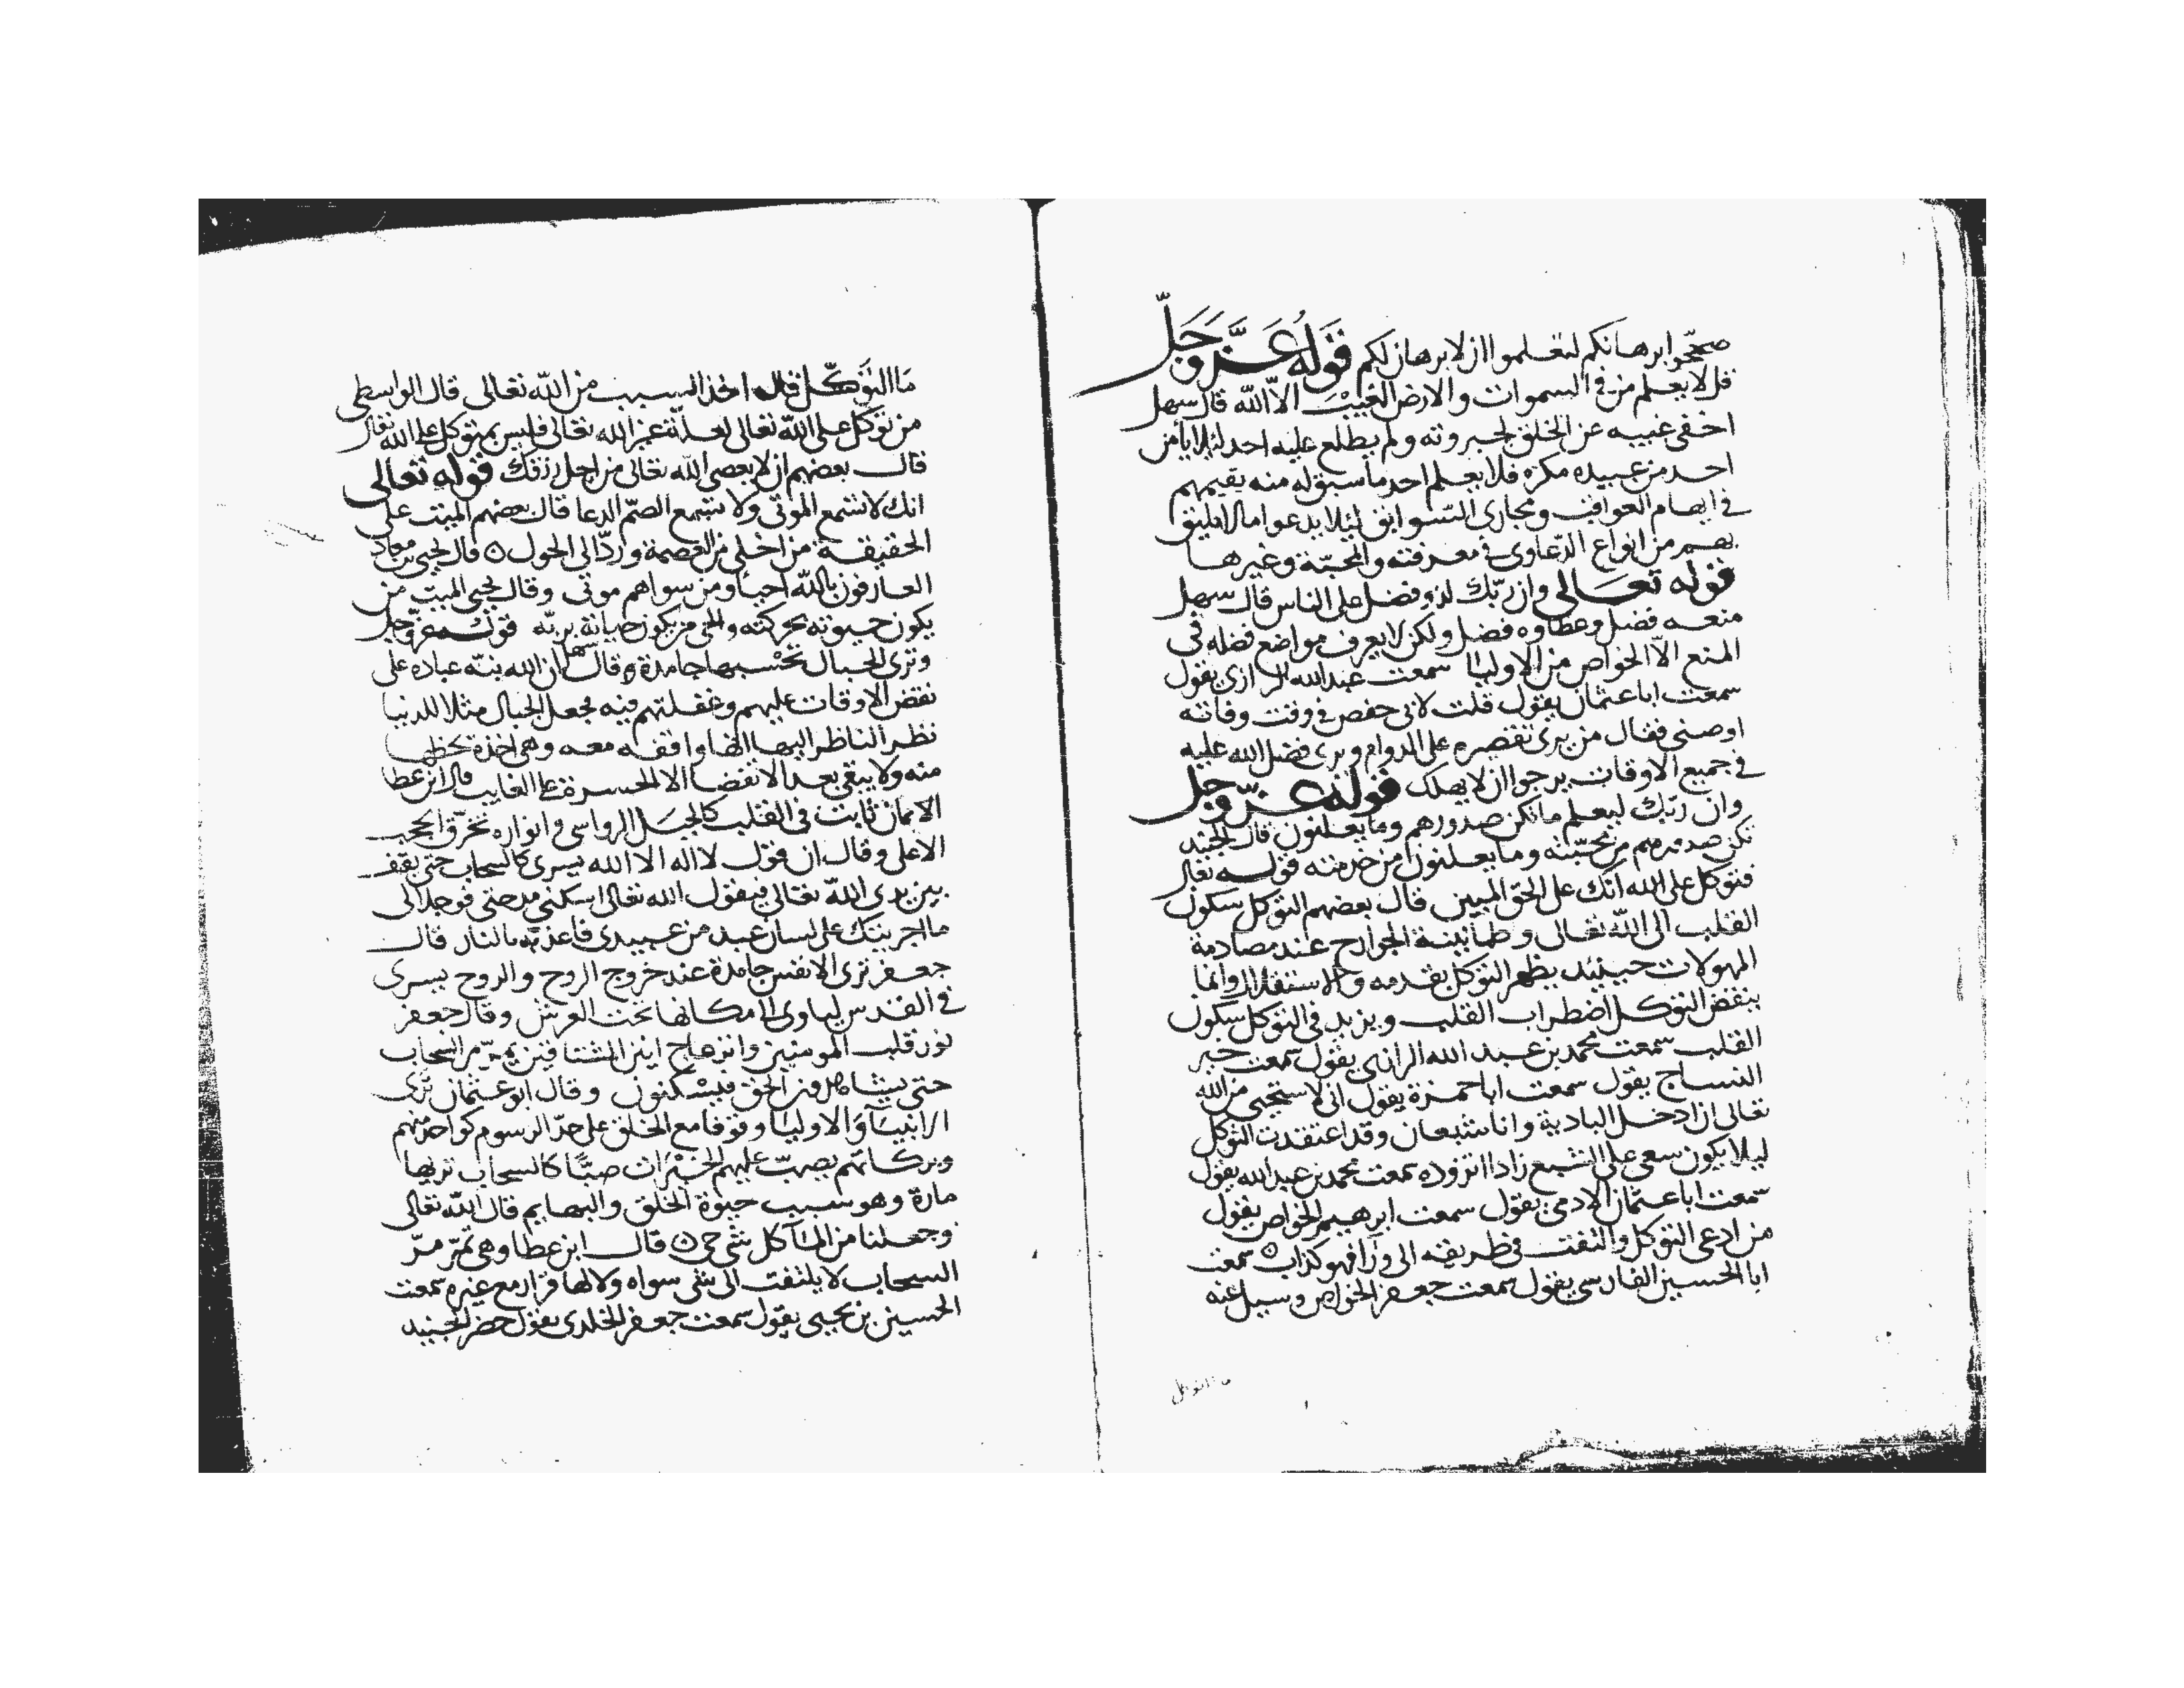 صححوا برهانكم لتعلموا ان لا برهان لكم قوله عز وجل
قل لا يعلم من في السموات والارض الغيب الا الله قال سهل
اخفى غيبه عن الخلق بجبروته ولم يطلع عليه احد لئلا يأمن
احد من عبيده مكره فلا يعلم احد ما سبق له منه يقيمهم
في ابهام العواقب ومجارى السوابق لئلا يدعوا ما لا يليق
بهم من انواع الدعاوى في معرفته والمحبة وغيرها
قوله تعالى وان ربك لذو فضل على الناس قال سهل
منعه فضل وعطاوه فضل ولكن لا يعرف مواضع فضله في
المنع الا الخواص من الاوليا سمعت عبد الله الرازى يقول
سمعت ابا عثمان يقول قلت لابى حفص في وقت وفاته
اوصنى فقال من يرى تقصيره على الدوام ويرى فضل الله عليه
في جميع الاوقات يرجوا ان لا يهلك قوله عز وجل
وان ربك ليعلم ما تكن صدورهم وما يعلنون قال الجنيد
تكن صدورهم من محبته وما يعلنون من خدمته قوله تعالى
فتوكل على الله انك على الحق المبين قال بعضهم التوكل سكون
القلب الى الله تعالى وطمانينة الجوارح عند مصادمة
المهولات حينئذ يظهر التوكل بقدمه والاستقلال وانما
ينقض التوكل اضطراب القلب ويزيد في التوكل سكون
القلب سمعت محمد بن عبد الله الرازى يقول سمعت خير
النساج يقول سمعت ابا حمزة يقول انى لاستحيى من الله
تعالى ان ادخل البادية وانا شبعان وقد اعتقدت التوكل
ليلا يكون سعى على الشبع زادا اتزوده سمعت محمد بن عبد الله يقول
سمعت ابا عثمان الادمى يقول سمعت ابرهيم الخواص يقول
من ادعى التوكل والتفت في طريقه الى ورآ فهو كذاب سمعت
ابا الحسين الفارسى يقول سمعت جعفر الخواص وسيل عنه
ما التوكل
ما التوكل قال اخذ السبب من الله تعالى قال الواسطى
من توكل على الله تعالى لعلة غير الله تعالى فليس بمتوكل على الله تعالى
قال بعضهم ان لا يعصى الله تعالى من اجل رزقك قوله تعالى
انك لا تسمع الموتى ولا تسمع الصم الدعا قال بعضهم الميت على
الحقيقة من اخلى من العصمة ورد الى الحول قال يحيى بن معاذ
العارفون بالله احيا ومن سواهم موتى وقال يحيى الميت من
يكون حيوته بحركته والحى من يكون حياته بربه قوله عز وجل
وترى الجبال تحسبها جامدة قال سهل ان الله نبه عباده على
نقض الاوقات عليهم وغفلتهم فيه فجعل الجبال مثلا للدنيا
نظر الناظر اليها انها واقفه معه وهى اخذة بحظها
منه ولا يبقى بعد الانقضا الا الحسرة على الغايب قال ابن عطا
الايمان ثابت في القلب كالجبل الرواسى وانواره تخرق الحجب
الاعلى وقال ان قول لا اله الا الله يسرى كالسحاب حتى يقف
بين يدى الله تعالى فيقول الله تعالى اسكنى مدحتى فوجلالى
ما اجريتك على لسان عبد من عبيدى فاعذبه بالنار قال
جعفر ترى الانفس جامدة عند خروج الروح والروح يسرى
في القدس لياوى الى مكانها تحت العرش وقال جعفر
نور قلب المومنين وانزعاج انين المشتاقين يمر مر السحاب
حتى يشاهدون الحق فيسكنون وقال ابو عثمان ترى
الانبيآ والاوليا وقوفا مع الخلق على حد الرسوم كواحد منهم
وبركاتهم يصب عليهم الخيرات صبا كالسحاب تريها
مارة وهو سبب حيوة الخلق والبهايم قال الله تعالى
وجعلنا من المآ كل شى حى قال ابن عطا وهى تمر مر
السحاب لا يلتفت الى شى سواه ولا لها قرار مع غيره سمعت
الحسين بن يحيى يقول سمعت جعفر الخلدى يقول حضر الجنيد